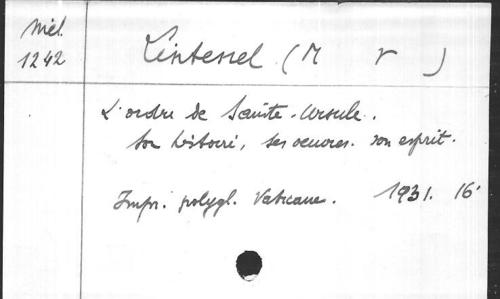 Mél.
1242
Lintenel (M r )
L'ordre de Sainte-Ursule.
Son histoire, ses oeuvres. son esprit.
Impr. polygl. Vaticane. 1931. 16°